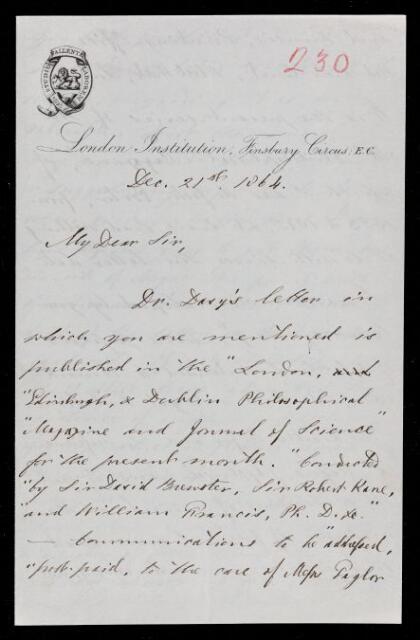 STUDIO FALLENTE LABOREM
230
London Institution, Finsbury Circus, E.C.
Dec. 21st. 1864.
My Dear Sir,
Dr. Davy's letter in
which you are mentioned is
published in the "London,
"Edinburgh, & Dublin Philosophical
"Magazine and Journal of Science"
for the present month. "Conducted
"by Sir David Brewster, Sir Robert Kane,
"and William Francis, Ph. D. &c."
— Communications to be "addressed,
"post-paid, to the care of Messrs Taylor